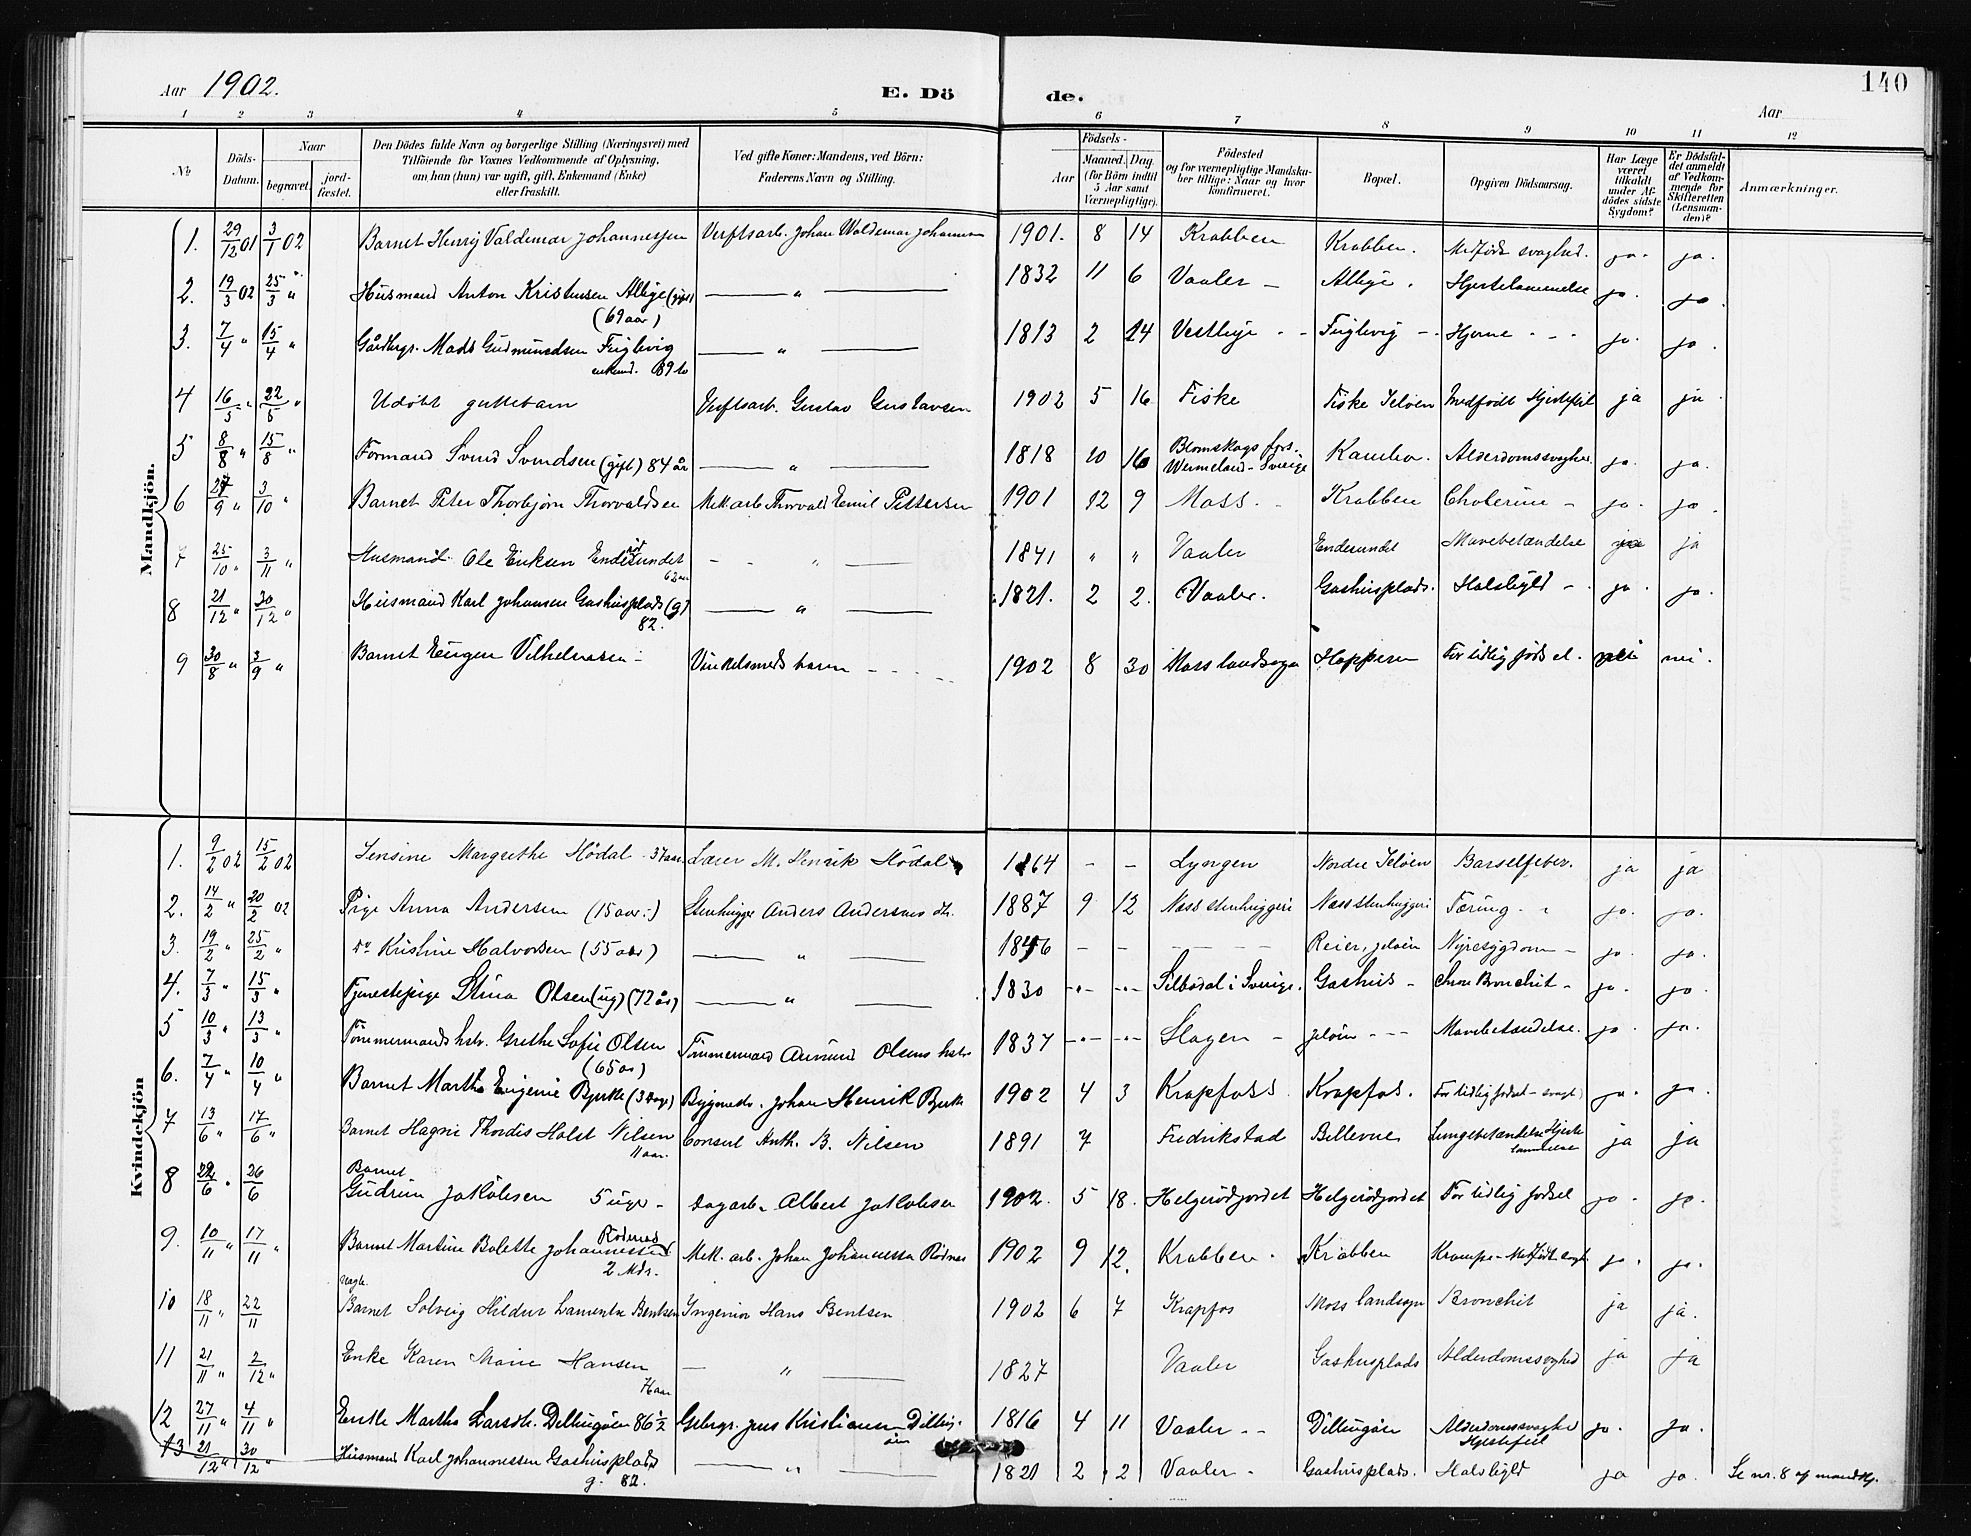 Aar 1902.
E. Dö
de.
Aar
140
1 2 3 4 5 6 7 8 9 10 11 12
No
Döds-
Datum.
Naar
begravet.
jord-
fæstet.
Den Dödes fulde Navn og borgerlige Stilling (Næringsvei) med
Tilföiende for Voxnes Vedkommende af Oplysning,
om han (hun) var ugift, gift, Enkemand (Enke)
eller fraskilt.
Ved gifte Koner: Mandens, ved Börn:
Faderens Navn og Stilling.
Födsels-
Aar
Maaned. Dag.
(for Börn indtil
5 Aar samt
Værnepligtige).
Födested
og for værnepligtige Mandska-
ber tillige: Naar og hvor
konfirmeret.
Bopæl.
Opgiven Dödsaarsag.
Har Læge
været
tilkaldt
under Af-
dödes sidste
Sygdom?
Er Dödsfal-
det anmeldt
af Vedkom-
mende for
Skifteretten
(Lensman-
den)?
Anmærkninger.
Mandkjön.
1. 29/12 01 3/1 02 Barnet Henry Valdemar Johannessen Verftsarb. Johan Waldemar 1901. 8 14 Krabben Krabben. Medfödt svaghed. ja. ja.
2. 19/3 02 25/3 " Husmand Anton Kristensen Albye (gift) — " — 1832 11 6 Vaaler - Albye. Hjertelammelse ja. ja.
(69 aar)
3. 7/4 " 15/4 " Gårdbgr. Mads Gudmundsen Fuglevig — " — 1813 2 14 Vestbye - - Fuglevig - - Hjerne - - - ja. ja.
enkemd. 89
4 16/5 " 22/5 " Udöbt guttebarn Verftsarb. Gustav Gustavsen 1902 5 16 Fiske Fiske Jelöen Medfödt Hjertefeil ja ja
5 8/8 " 15/8 " Formand Svend Svendsen (gift) 84 år — " — 1818 10 16 Blomskogs
Wermeland - Sverige Kambo. Alderdomssvaghed ja. ja.
6 27/9 " 3/10 " Barnet Peter Thorbjörn Thorvaldsen Mek. arb. Thorvald Emil Pettersen 1901 12 9 Moss. Krabben Cholerine - ja. ja.
7 25/10 " 3/11 " Husmand Ole Eriksen Enderødsundet - - " — 1841 " " Vaaler Endesundet Mavebetændelse ja ja
62 aar
8 21/12 " 30/12 " Husmand Karl Johansen Gashusplads (g) — " — 1821. 2 2. Vaaler. Gashusplads. Halsbyld - ja. ja.
82.
9 30/8 " 3/9 " Barnet Eugen Vilhelmsen - 1902 8 30 Moss landsogn Hoppern For tidlig födsel. nei nei.
Kvindekjön
1. 9/2 02 15/2 02 Jensine Margrethe Hödal 37 aar Lærer M. Henrik Hödal 1864 - - Lyngen Nordre Jelöen Barselfeber. ja ja
2. 14/2 " 20/2 02 Pige Anna Andersen (15 aar.) Stenhugger Anders Andersens dtr. 1887 9 12 Næss stenhuggeri Næss stenhuggeri Tæring - " ja. ja.
3. 19/2 " 25/2 " do Kristine Halvorsen (55 aar) — " — 1846 - - - - - Reier, Jelöen Nyresygdom - ja. ja.
4. 7/3 " 15/3 " Tjenestepige Stina Olsen (ug) (72 år) — " — 1830 -"- -"- Silbodal i Sverige. Gashus - Chron. Bronchit - ja. ja.
5 10/3 " 13/3 " Tömmermands hstr. Grethe Sofie Olsen Tömmermand Amund Olsens hstr. 1837 -"- -"- Slagen - Jelöen - - - Mavebetændelse. ja. ja.
(65 år)
6. 7/4 " 10/4 " Barnet Martha Eugenie Bjerke (3 dage) Bygmestr. Johan Henrik Bjerke 1902 4 3 Krapfoss Krapfos. For tidlig födsel - svagt ja. ja.
7 13/6 " 17/6 " Barnet Hagni Thordis Holst Nilsen Consul Anth. B. Nilsen 1891 7 Fredrikstad Bellevue Lungebetændelse Hjerte
lammelse ja ja
11 aar.
8 22/6 " 26/6 Barnet
Gudrun Jakobsen 5 uger - Dagarb. Albert Jakobsen 1902. 5 18. Helgerödjordet Helgerödjordet For tidlig födsel ja. ja.
9. 10/11 " 17/11 " Barnet Martine Bolette Johannessen Rödenes Mek. arb. Johan Johannessen Rödnes 1902 9 12. Krabben. Krabben Krampe - Medfödt svagh. ja. ja.
2 Mdr.
10 18/11 " 22/11 Barnet Solveig Hildur Bentsen Ingeniør Hans Bentsen 1902 6 7 Krapfos Moss landsogn Bronchit ja ja.
11 21/11 " 2/12 " Enke Karen Marie Hansen — " — 1827 Vaaler Gashusplads Alderdomssvaghed ja ja
12 27/11 " 4/11 " Enke Martha Larsdtr. Dillingöen 86 1/2 Gbrgr. Jens Kristiansen Dilling-
öen 1816 4 11 Vaaler - - Dillingöen Alderdomssvaghed
Hjertefeil ja. ja.
13 21/12 " 30/12 " Husmand Karl Johannessen Gashusplads — " — 1821 2 2 Vaaler - Gashusplads. Halsbyld ja ja. Se nr. 8 af mandkj.
g. 82.